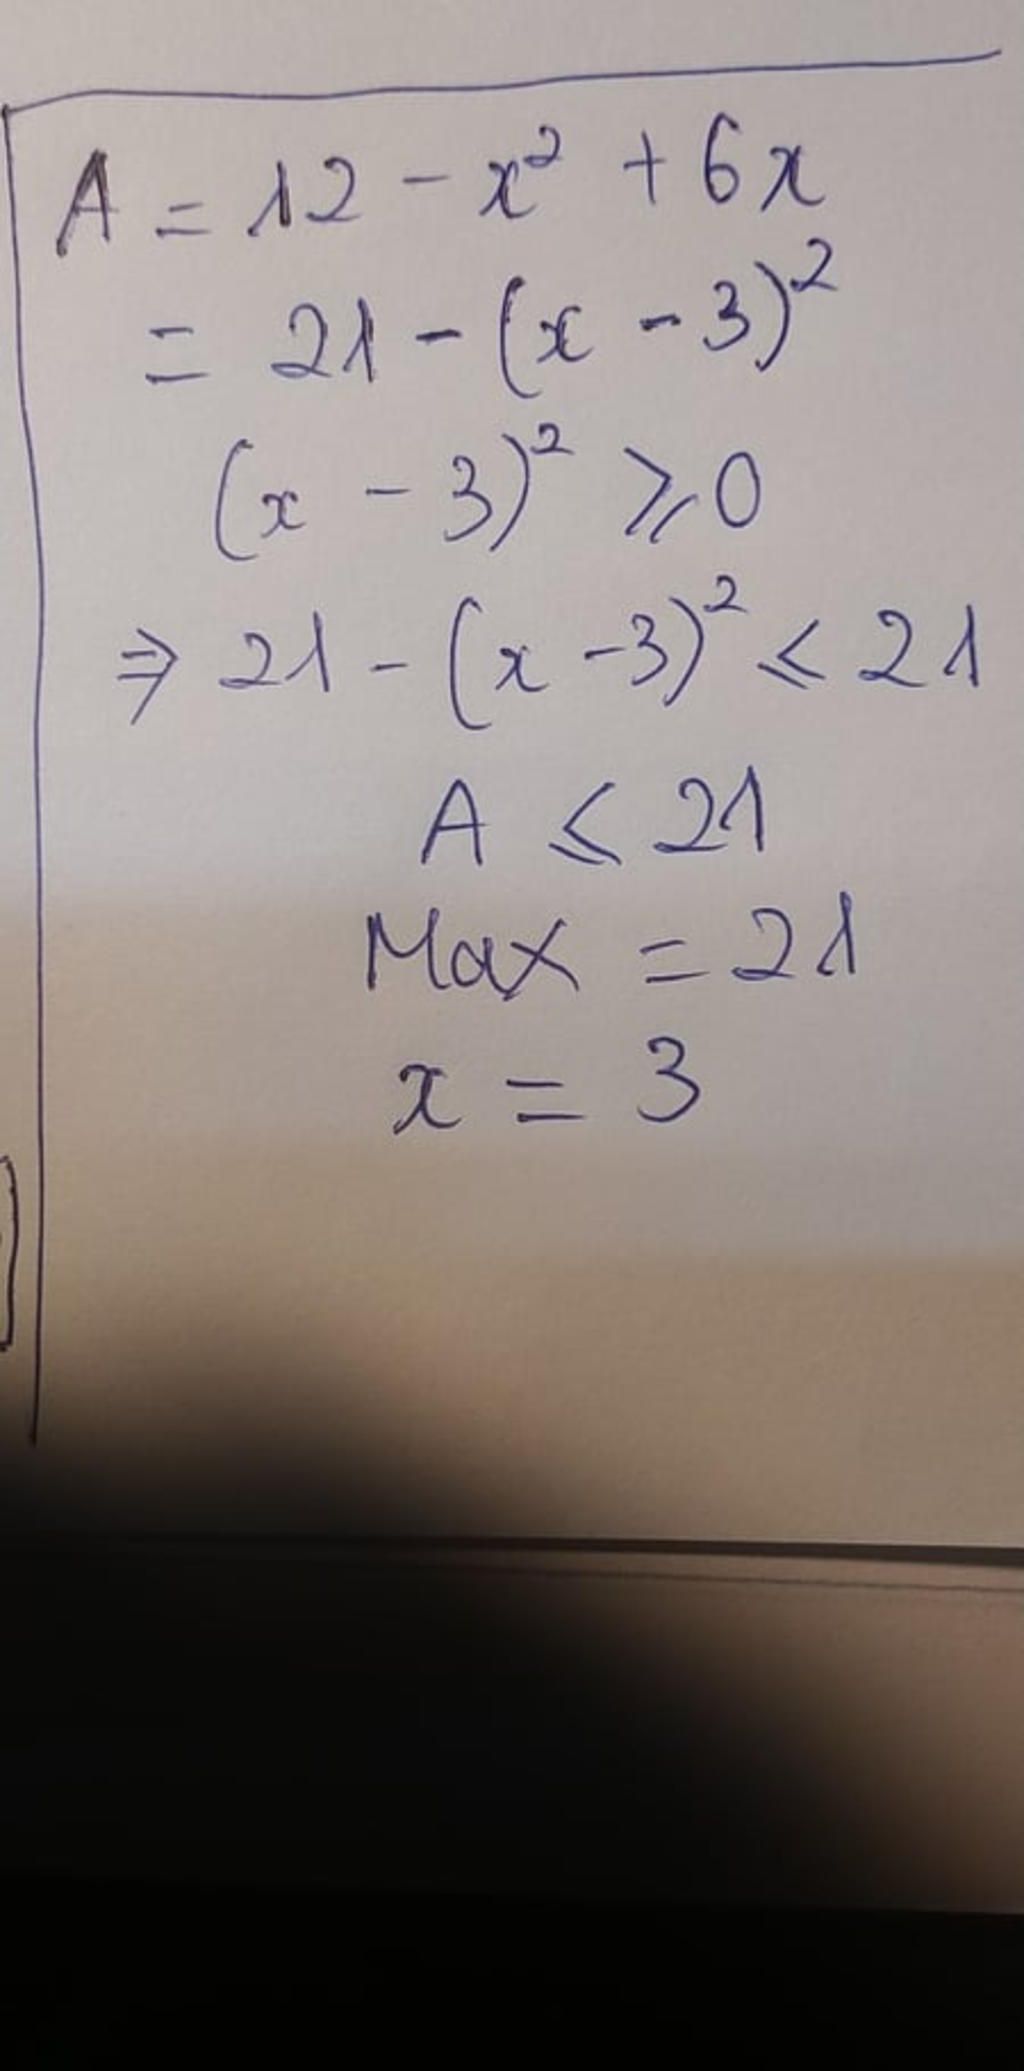 A = 12 - x² + 6x
= 21 - (x - 3)²
(x - 3)² ⩾ 0
⇒ 21 - (x - 3)² ⩽ 21
A ⩽ 21
Max = 21
x = 3